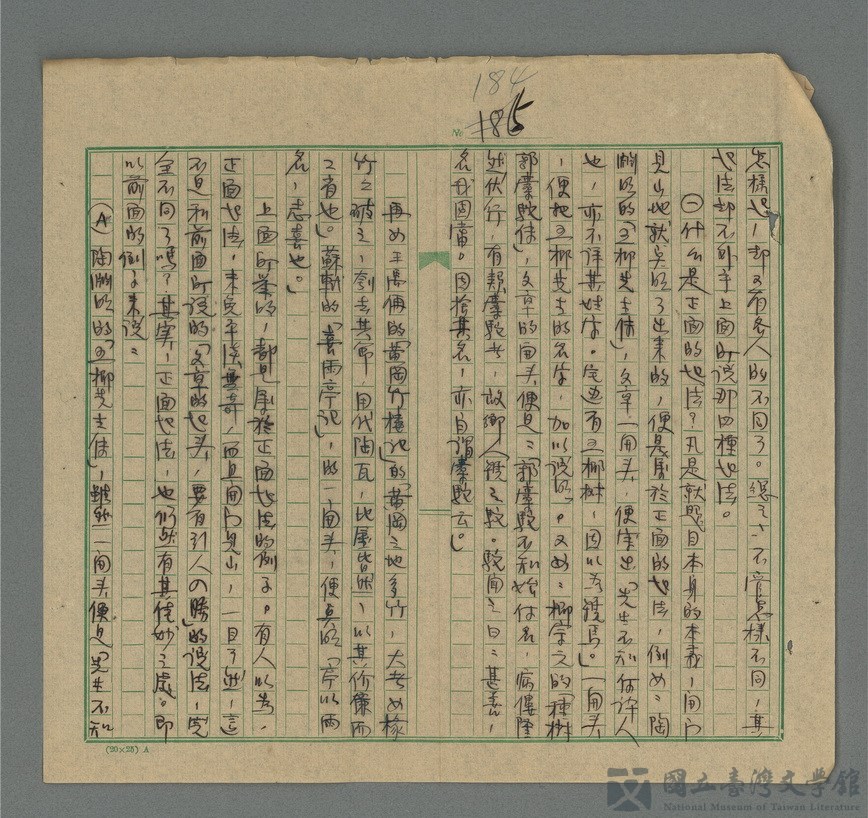 184
No 185
怎樣起，却又有各人的不同了。總之，不管怎樣不同，其
起法却不外乎上面所說那四種起法。
㊀什么是正面的起法？凡是就題目本身的本義，開门
見山地就点明了出来的，便是屬於正面的起法，例如：陶
淵明的「五柳先生传」，文章一開头，便寫出「先生不知何許人
也，亦不详其姓字。宅边有五柳树，因以為號焉。」一開头
，便把五柳先生的名字，加以說明。又如：柳宗元的「種树
郭橐駝传」，文章的開头便是：「郭橐駝不知始何名，病僂隆
然伏行，有類橐駝者，故鄉人號之駝。駝聞之曰：甚善，
名我固當。因捨其名，亦自謂橐駝云。」
再如王禹偁的「黄岡竹樓记」的「黄岡之地多竹，大者如椽
竹工破之，刳去其節，用代陶瓦，比屋皆然，以其价廉而
工省也」。蘇軾的「喜雨亭记」，的一開头，便点明「亭以雨
名，志喜也。」
上面所举的，都是屬於正面起法的例子。有人以為，
正面起法，未免平淡無奇，而且開门見山，一目了然，這
不是和前面所說的「文章的起头，要有引人入勝」的說法，完
全不同了嗎？其实，正面起法，也仍然有其佳妙之處。即
以前面的例子来說：
Ⓐ陶淵明的「五柳先生传」，雖然一開头，便是「先生不知
(20×25) A
國立臺灣文學館
National Museum of Taiwan Literature